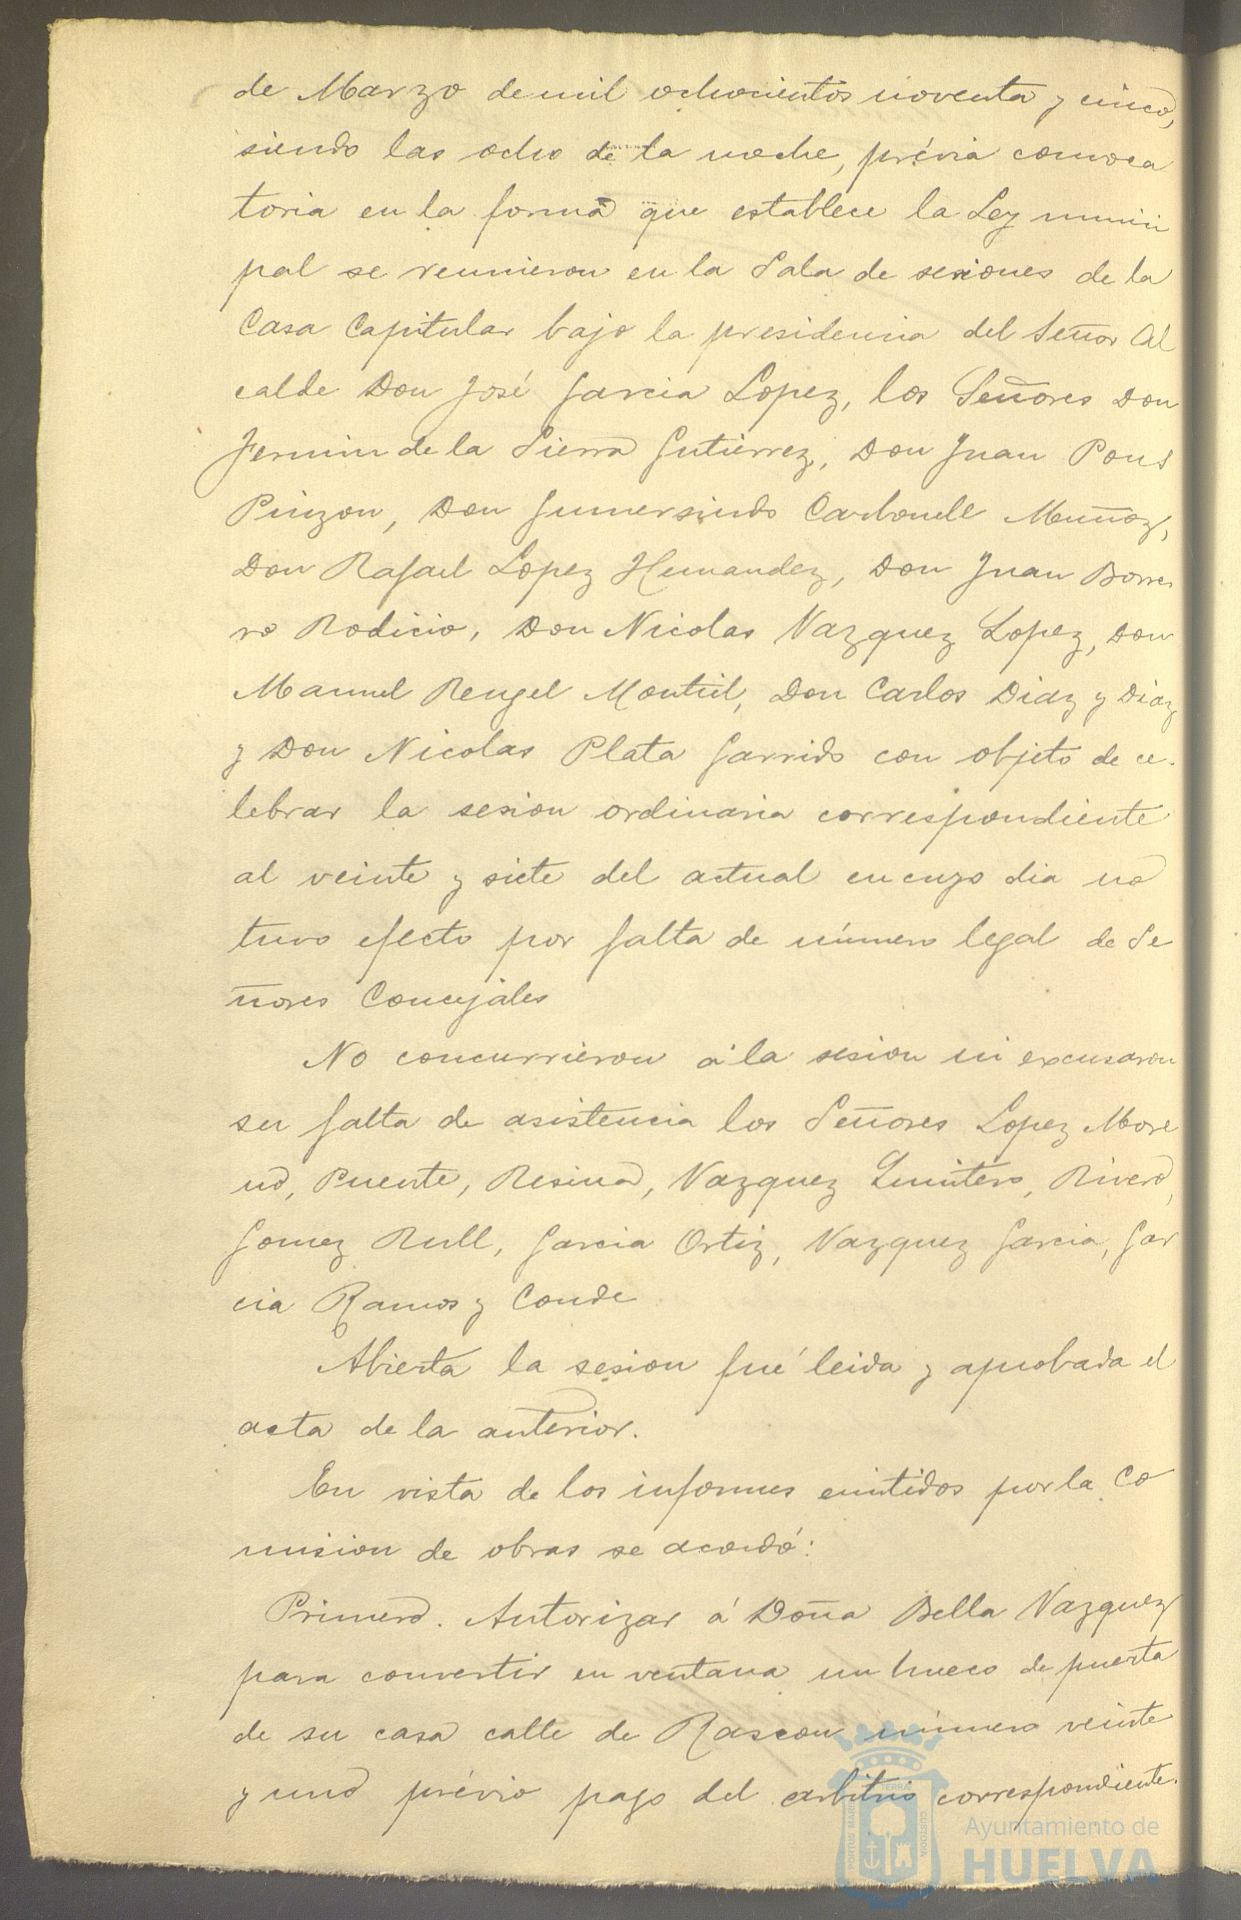 de Marzo de mil ochocientos noventa y cinco,
siendo las ocho de la noche, prévia convoca
toria en la forma que establece la Ley munici
pal se reunieron en la Sala de sesiones de la
Casa Capitular bajo la presidencia del Señor Al
calde Don José Garcia Lopez, los Señores Don
Fermin de la Sierra Gutierrez, Don Juan Pons
Pinzon, Don Gumersindo Carbonell Muñoz,
Don Rafael Lopez Hernandez, Don Juan Borre
ro Rodicio, Don Nicolas Vazquez Lopez, Don
Manuel Rengel Montiel, Don Carlos Diaz y Diaz
y Don Nicolas Plata Garrido con objeto de ce-
lebrar la sesion ordinaria correspondiente
al veinte y siete del actual en cuyo dia no
tuvo efecto por falta de número legal de Se
ñores Concejales
No concurrieron á la sesion ni excusaron
su falta de asistencia los Señores Lopez More
no, Puente, Resina, Vazquez Quintero, Rivero,
Gomez Rull, Garcia Ortiz, Vazquez Garcia, Gar
cia Ramos y Conde
Abierta la sesion fué leida y aprobada el
acta de la anterior.
En vista de los informes emitidos por la Co
mision de obras se acordó:
Primero. Autorizar á Doña Bella Vazquez
para convertir en ventana un hueco de puerta
de su casa calle de Rascon número veinte
y uno prévio pago del arbitrio correspondiente.
PORTUS MARIS ET TERRÆ CUSTODIA
Ayuntamiento de
HUELVA